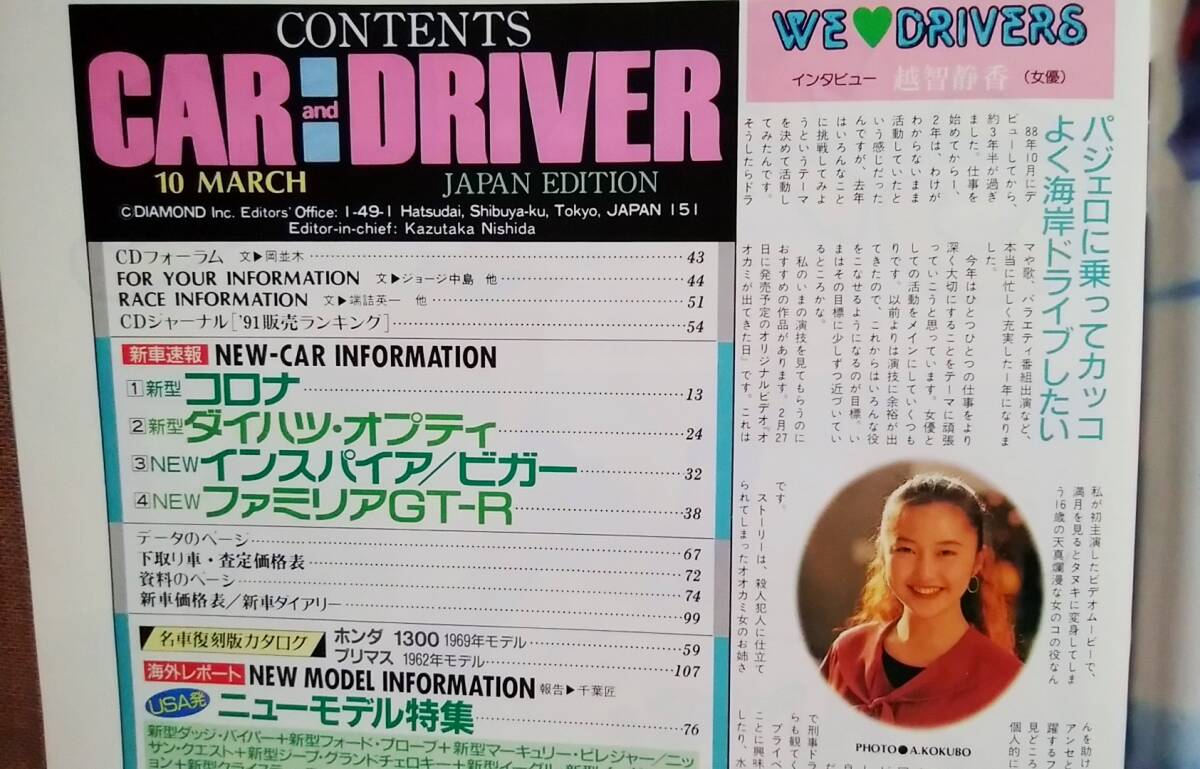 CONTENTS
CAR and DRIVER
10 MARCH JAPAN EDITION
©DIAMOND Inc. Editors' Office: 1-49-1 Hatsudai, Shibuya-ku, Tokyo, JAPAN 151
Editor-in-chief: Kazutaka Nishida
CDフォーラム 文▶岡並木 43
FOR YOUR INFORMATION 文▶ジョージ中島 他 44
RACE INFORMATION 文▶端詰英一 他 51
CDジャーナル['91販売ランキング] 54
新車速報 NEW-CAR INFORMATION
1 新型コロナ 13
2 新型ダイハツ・オプティ 24
3 NEWインスパイア/ビガー 32
4 NEWファミリアGT-R 38
データのページ 67
下取り車・査定価格表 72
資料のページ 74
新車価格表/新車ダイアリー 99
名車復刻版カタログ ホンダ 1300 1969年モデル 59
プリマス 1962年モデル 107
海外レポート NEW MODEL INFORMATION 報告▶千葉匠
USA発 ニューモデル特集 76
新型ダッジ・バイパー+新型フォード・プローブ+新型マーキュリー・ビレジャー/ニッ
サン・クエスト+新型ジープ・グランドチェロキー+新型イーグル
WE♥DRIVERS
インタビュー 越智静香(女優)
パジェロに乗ってカッコ
よく海岸ドライブしたい
88年10月にデ
ビューしてから、
約3年半が過ぎ
ました。仕事を
始めてから1、
2年は、わけが
わからないまま
活動していたと
いう感じだった
んですが、去年
はいろんなこと
に挑戦してみよ
うというテーマ
を決めて活動し
てみたんです。
そうしたらドラ
マや歌、バラエティ番組出演など、
本当に忙しく充実した1年になりま
した。
今年はひとつひとつの仕事をより
深く大切にすることをテーマに頑張
っていこうと思っています。女優と
しての活動をメインにしていくつも
りです。以前よりは演技に余裕が出
てきたので、これからはいろんな役
をこなせるようになるのが目標。い
まはその目標に少しずつ近づいてい
るところかな。
私のいまの演技を見てもらうのに
おすすめの作品があります。2月27
日に発売予定のオリジナルビデオ『オ
オカミが出てきた日』です。これは
私が初主演したビデオムービーで、
満月を見るとタヌキに変身してしま
う16歳の天真爛漫な女のコの役なん
です。
ストーリーは、殺人犯人に仕立て
られてしまったオオカミ女のお姉さ
PHOTO●A.KOKUBO
んを助け